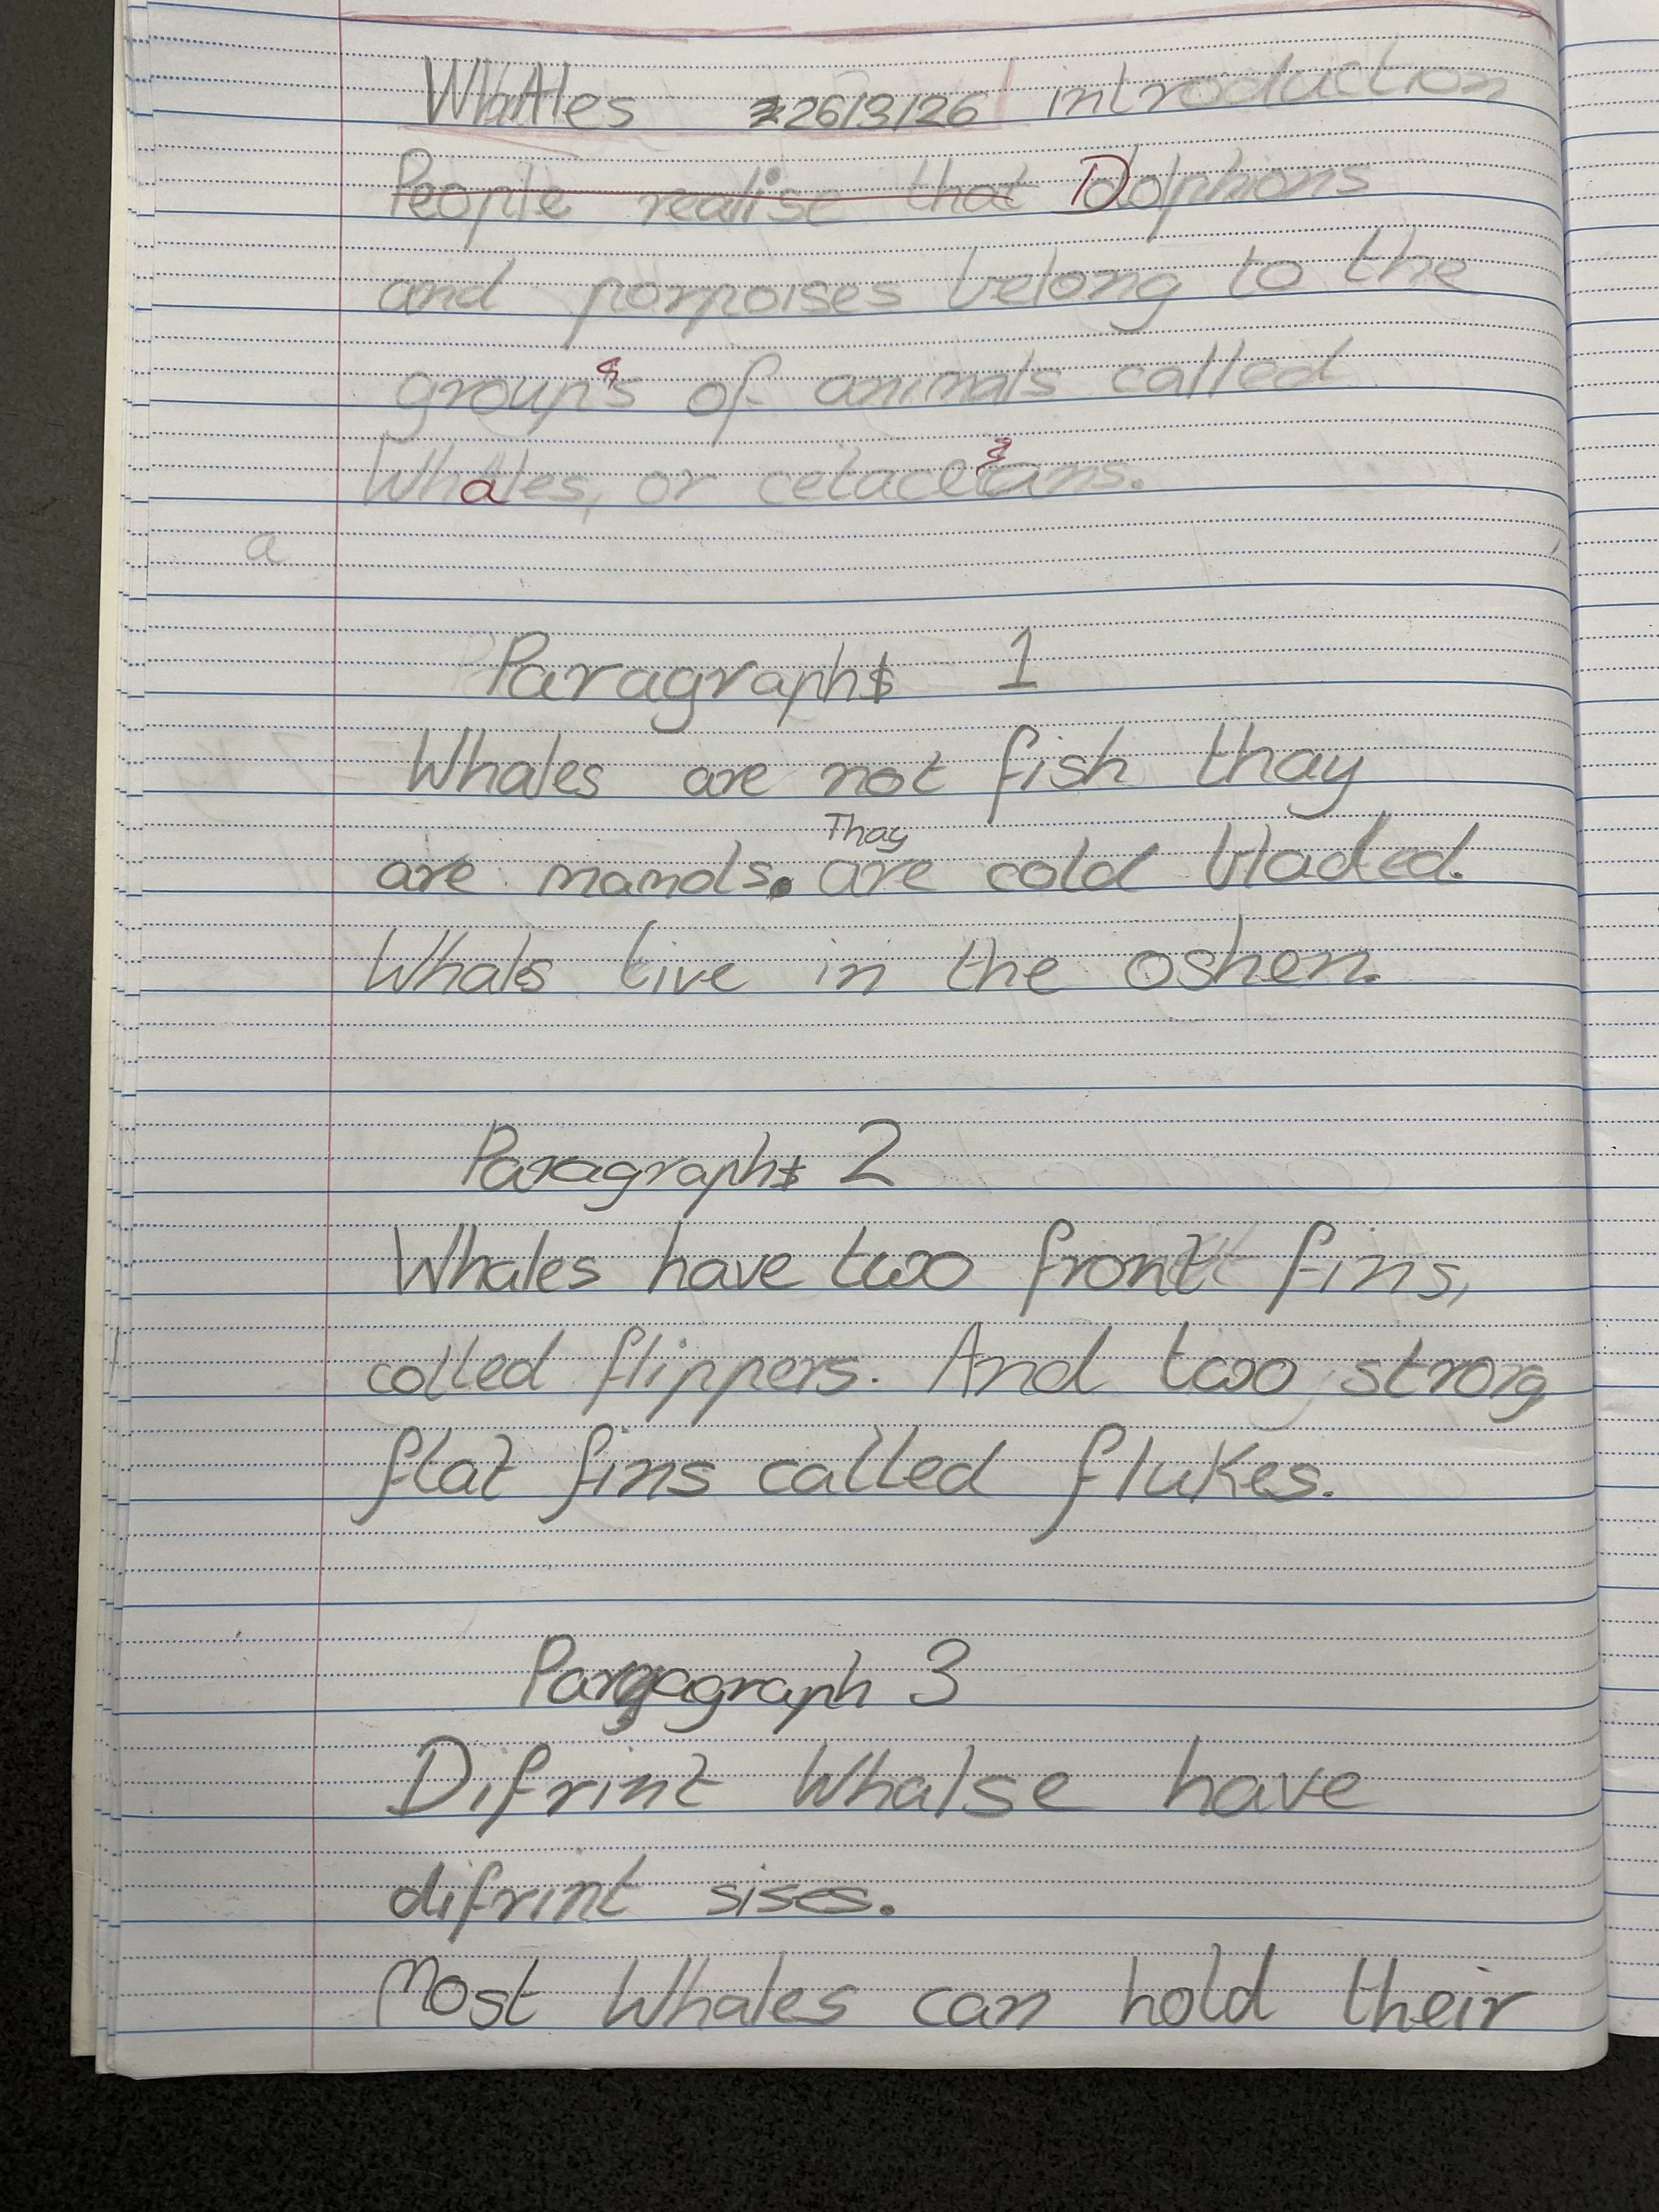 Whales 26/3/26 introduction
People realise that Dolphions
and porpoises belong to the
groups of animals called
Whales, or cetaceans.
a
Paragraphs 1
Whales are not fish thay
Thay
are mamols. are cold bladed.
Whals live in the oshen.
Paragraphs 2
Whales have two front fins,
called flippers. And two strong
flat fins called flukes.
Paragraph 3
Difrint Whalse have
difrint sises.
Most Whales can hold their